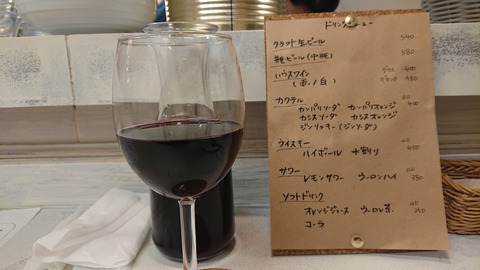 ドリンクメニュー
クラフト生ビール 540
瓶ビール(中瓶) 580
ハウスワイン グラス 400
(赤/白) デキャンタ 980
カクテル all 400
カンパリソーダ カンパリオレンジ
カシスソーダ カシスオレンジ
ジンリッキー(ジンソーダ)
ウイスキー all 400
ハイボール 水割り
サワー all 350
レモンサワー ウーロンハイ
ソフトドリンク all 250
オレンジジュース ウーロン茶
コーラ